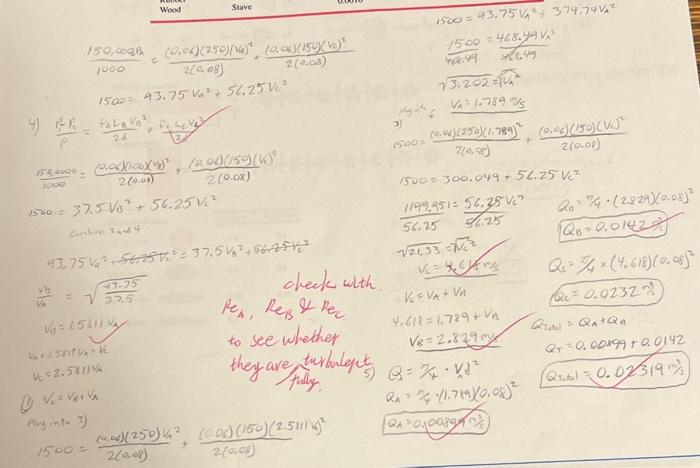 Wood Stave
150,000Pa/1000 = (0.06)(250)(VA)²/2(0.08) + (0.06)(150)(VC)²/2(0.08)
1500 = 93.75 VA² + 56.25 VC²
4) P₁-P₂/ρ = fB LB VB²/2d + fC LC VC²/2d
150,000/1000 = (0.06)(100)(VB)²/2(0.08) + (0.06)(150)(VC)²/2(0.08)
1500 = 37.5 VB² + 56.25 VC²
Combine 3 and 4
93.75 VA² + 56.25 VC² = 37.5 VB² + 56.25 VC²
VB/VA = √93.75/37.5
VB = 1.5811 VA
VA + 1.5811 VA = VC
VC = 2.5811 VA
① VC = VB + VA
Plug into 3)
1500 = (0.06)(250) VA²/2(0.08) + (0.06)(150)(2.5811 VA)²/2(0.08)
check with
ReA, ReB & ReC
to see whether
they are turbulent
fully
1500 = 93.75 VA² + 374.74 VA²
1500/468.49 = 468.49 VA²/468.49
√3.202 = √VA²
VA = 1.789 m/s
3)
1500 = (0.06)(250)(1.789)²/2(0.08) + (0.06)(150)(VC)²/2(0.08)
1500 = 300.049 + 56.25 VC²
1199.951/56.25 = 56.25 VC²/56.25
√21.33 = √VC²
VC = 4.618 m/s
VC = VA + VB
4.618 = 1.789 + VB
VB = 2.829 m/s
5) Q = π/4 · Vd²
QA = π/4 · (1.789)(0.08)²
QA = 0.00899 m³/s
QB = π/4 · (2.829)(0.08)²
QB = 0.0142 m³/s
QC = π/4 × (4.618)(0.08)²
QC = 0.0232 m³/s
QTotal = QA + QB
QT = 0.00899 + 0.0142
QTotal = 0.02319 m³/s